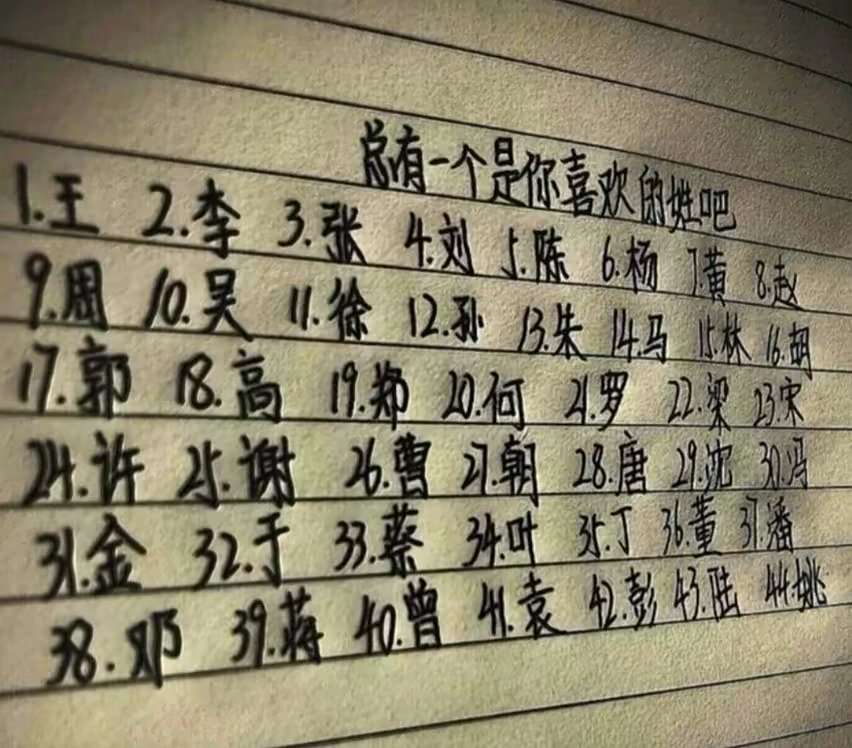 总有一个是你喜欢的姓吧
1.王 2.李 3.张 4.刘 5.陈 6.杨 7.黄 8.赵
9.周 10.吴 11.徐 12.孙 13.朱 14.马 15.林 16.胡
17.郭 18.高 19.郑 20.何 21.罗 22.梁 23.宋
24.许 25.谢 26.曹 27.朝 28.唐 29.沈 30.冯
31.金 32.于 33.蔡 34.叶 35.丁 36.董 37.潘
38.邓 39.蒋 40.曾 41.袁 42.彭 43.陆 44.姚